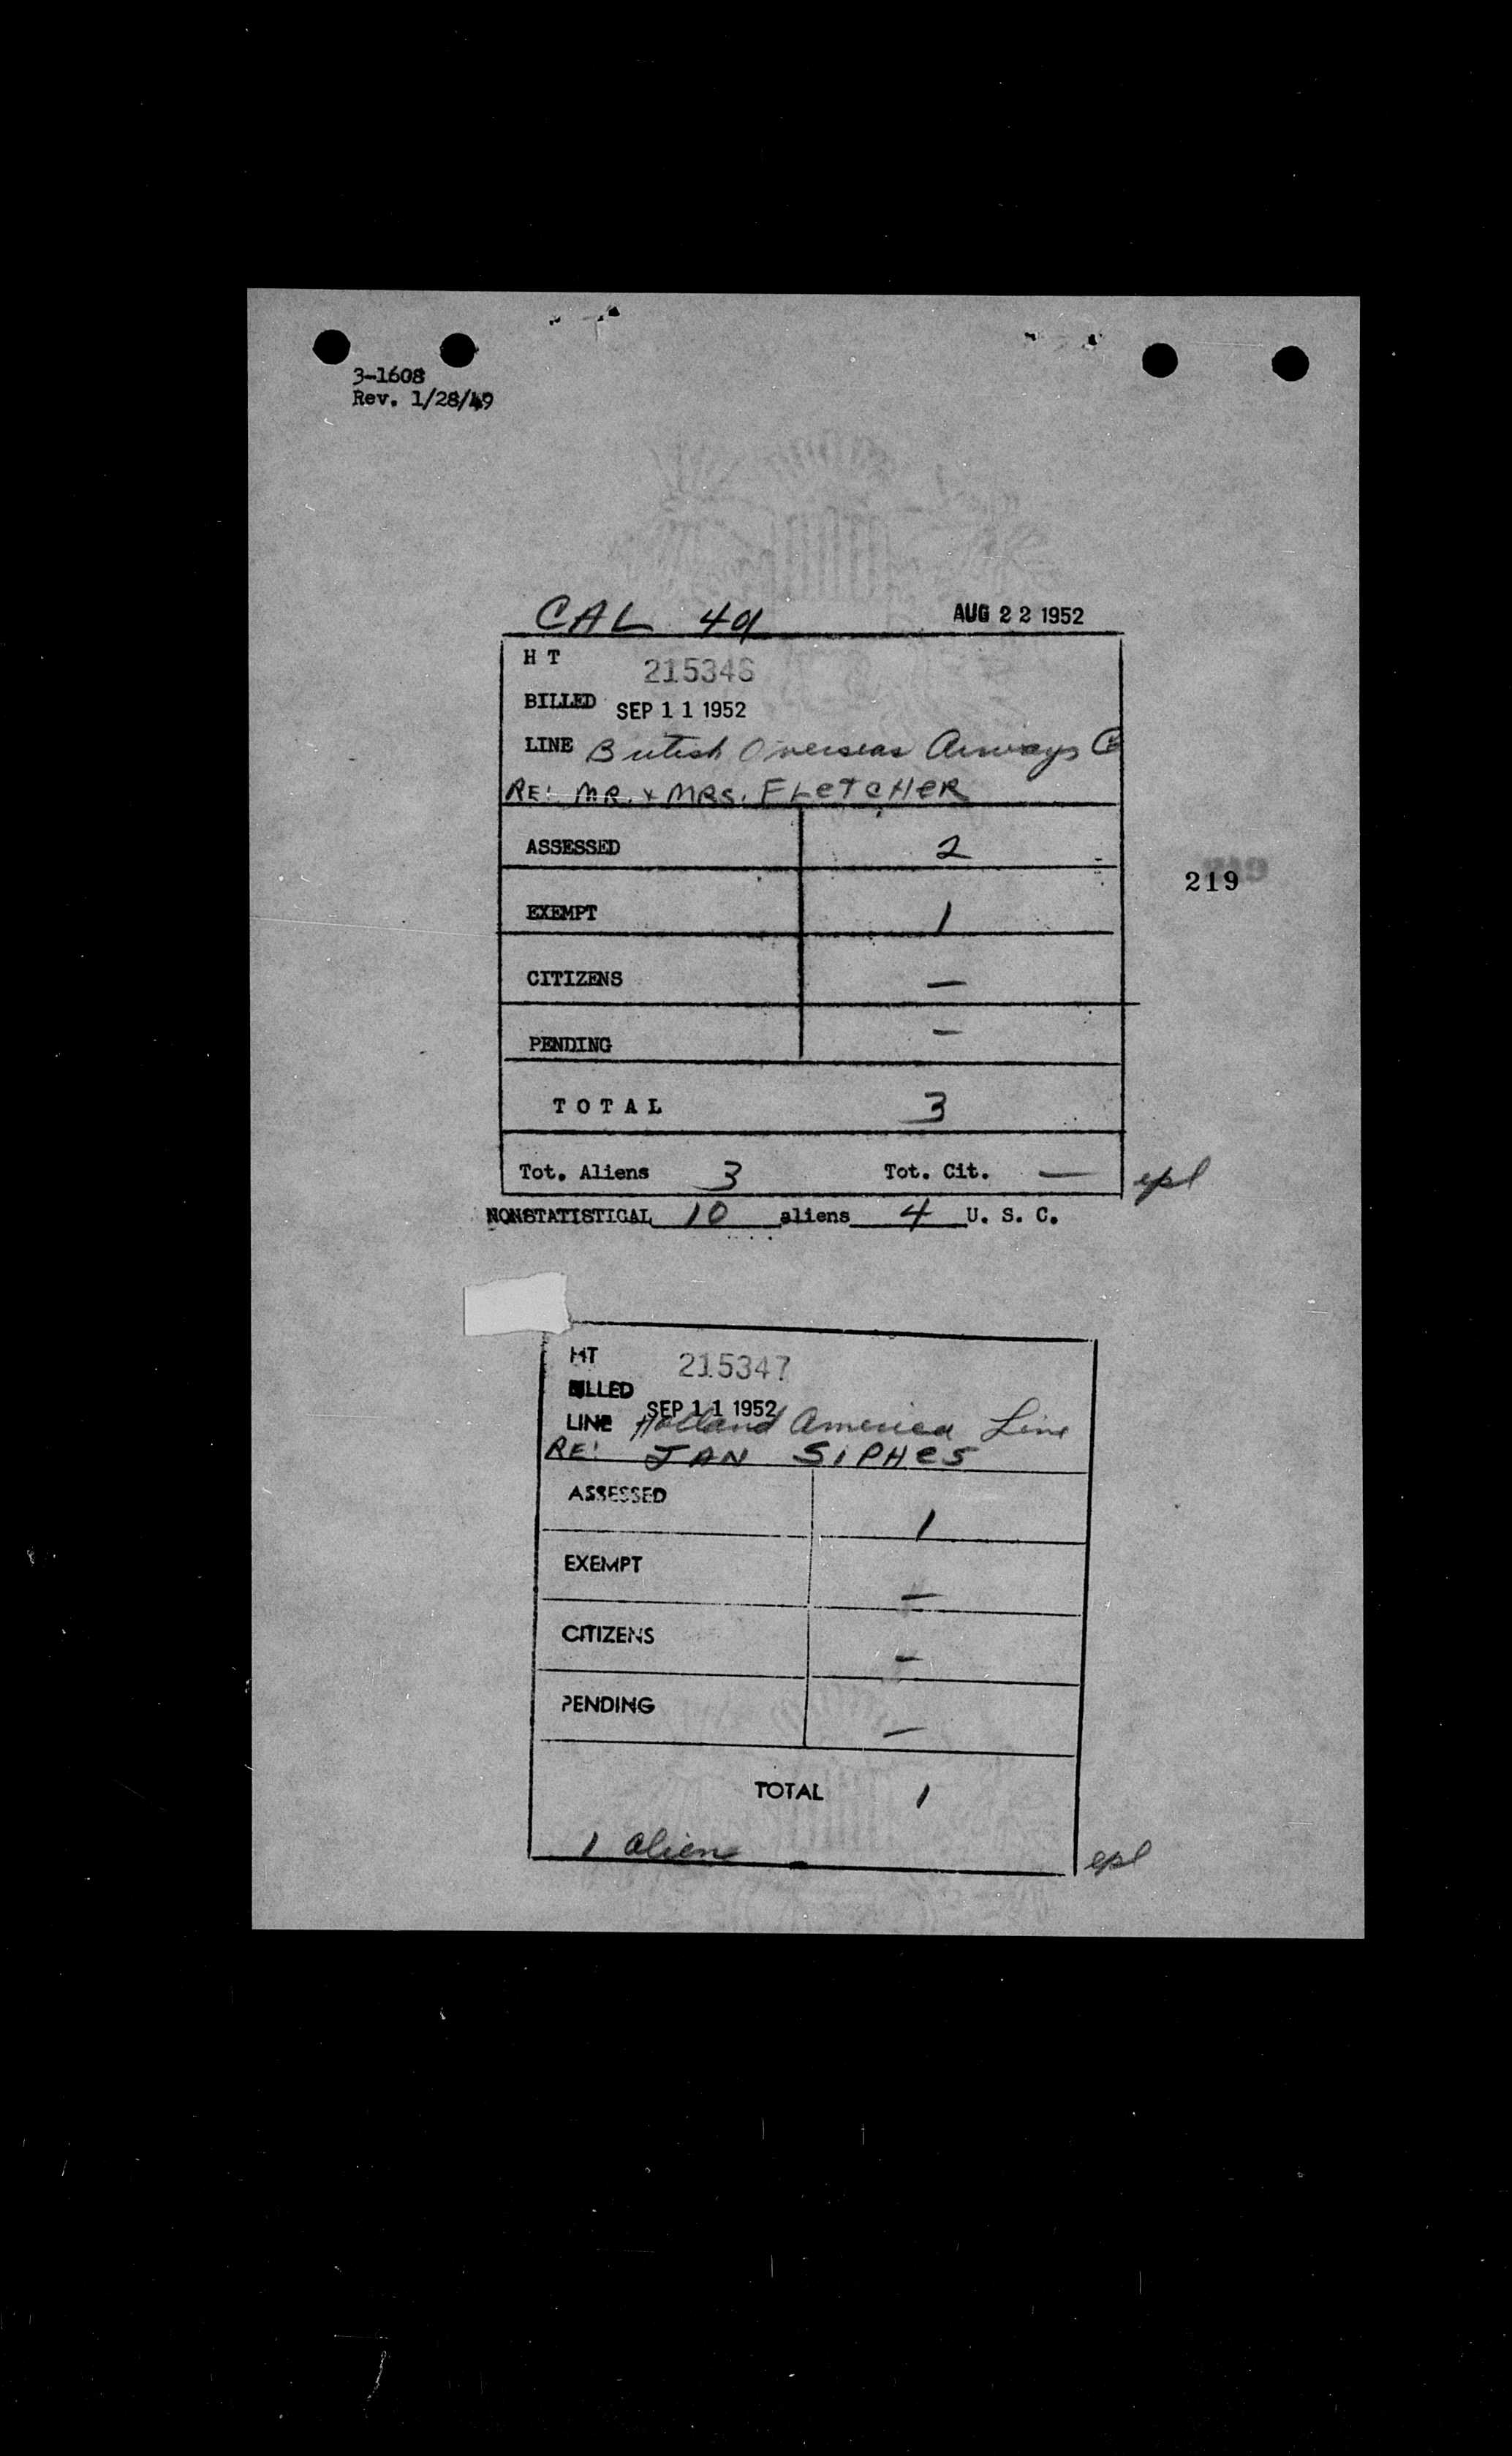 3-1608
Rev. 1/28/49
CAL 49 AUG 22 1952
H T 215346
BILLED SEP 11 1952
LINE British Overseas Airways C
RE: MR. & MRS. FLETCHER
ASSESSED 2
219
EXEMPT 1
CITIZENS —
PENDING —
TOTAL 3
Tot. Aliens 3 Tot. Cit. — epl
NONSTATISTICAL 10 aliens 4 U. S. C.
HT 215347
BILLED SEP 11 1952
LINE Holland America Line
RE: JAN SIPHES
ASSESSED 1
EXEMPT —
CITIZENS —
PENDING —
TOTAL 1
1 alien epl